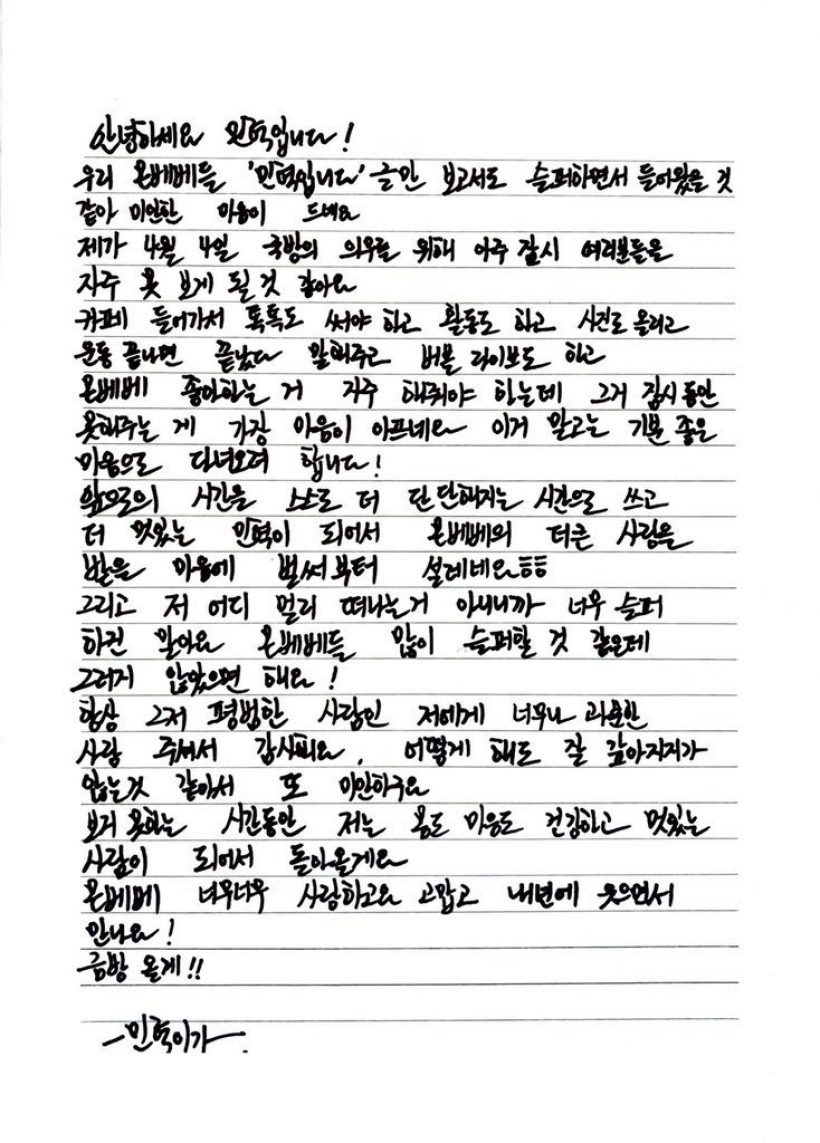 안녕하세요 민혁입니다!
우리 몬베베들 '민혁입니다' 글만 보고서도 슬퍼하면서 들어왔을 것
같아 미안한 마음이 드네요
제가 4월 4일 국방의 의무를 위해 아주 잠시 여러분들을
자주 못 보게 될 것 같아요
카페 들어가서 톡톡도 써야 하고 활동도 하고 사진도 올리고
운동 끝나면 끝났다 말해주고 버블 라이브도 하고
몬베베 좋아하는 거 자주 해줘야 하는데 그거 잠시 동안
못해주는 게 가장 마음이 아프네요 이거 말고는 기분 좋은
마음으로 다녀오려 합니다!
앞으로의 시간을 스스로 더 단단해지는 시간으로 쓰고
더 멋있는 민혁이 되어서 몬베베의 더큰 사랑을
받을 마음에 벌써부터 설레네요ㅎㅎ
그리고 저 어디 멀리 떠나는거 아니니까 너무 슬퍼
하진 말아요 몬베베들 많이 슬퍼할 것 같은데
그러지 않았으면 해요!
항상 그저 평범한 사람인 저에게 너무나 과분한
사랑 주셔서 감사해요. 어떻게 해도 잘 갚아지지가
않는것 같아서 또 미안하구요
보지 못하는 시간동안 저는 몸도 마음도 건강하고 멋있는
사람이 되어서 돌아올게요
몬베베 너무너무 사랑하고요 고맙고 내년에 웃으면서
만나요!
금방 올게!!
-민혁이가-